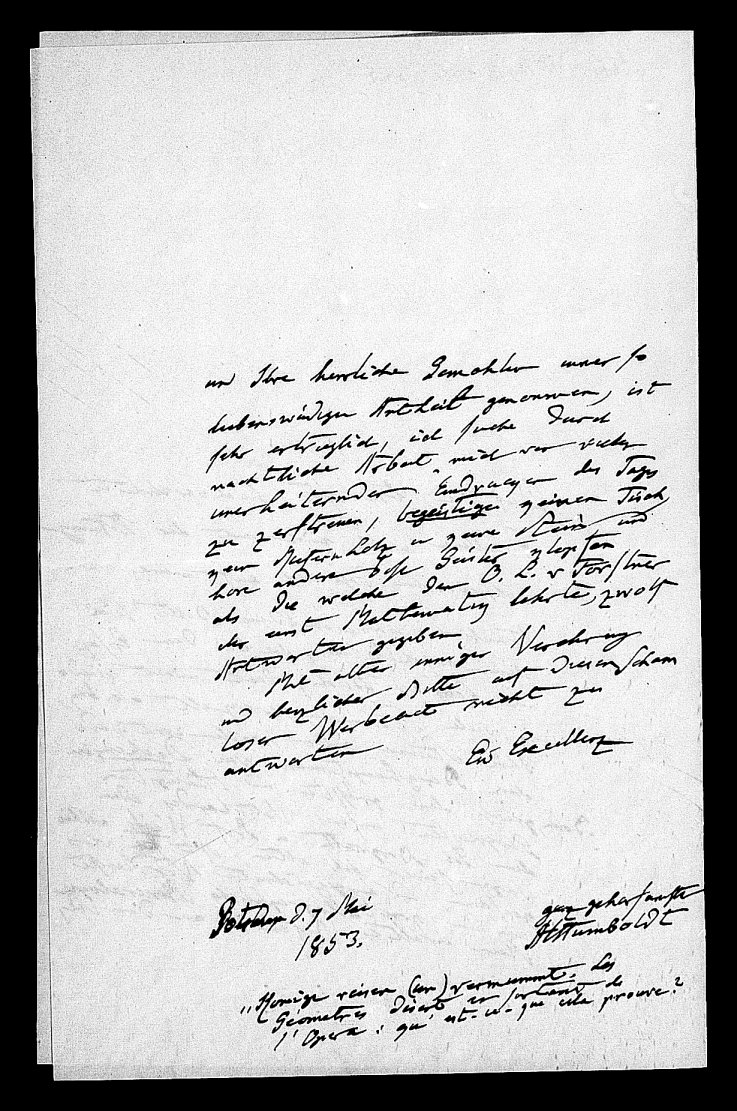 und Ihre herrliche Gemahlin immer so
liebenswürdigen Antheil genommen, ist
sehr erträglich, ich suche durch
nächtliche Arbeit mich vor vielen
unerheiternden Eindrücken des Tages
zu zerstreuen, begeistige keinen Tisch,
kein Stück Holz in keine und
höre andere böse Geister klopfen
als die welche dem O. L. v Forstner
der einst Mathematik lehrte, zwölf
Antworten gegeben
Mit alter inniger Verehrung
und herzlicher Bitte auf diesen scham
losen Werbeact nicht zu
antworten
Ew Excellenz
Potsdam d. 7 Mai
1853.
ganz gehorsamster
AHumboldt
„Könige reisen vermummt". Les
Géometres disent en sortant de
l'Opera: qu'est-ce-que cela prouve?